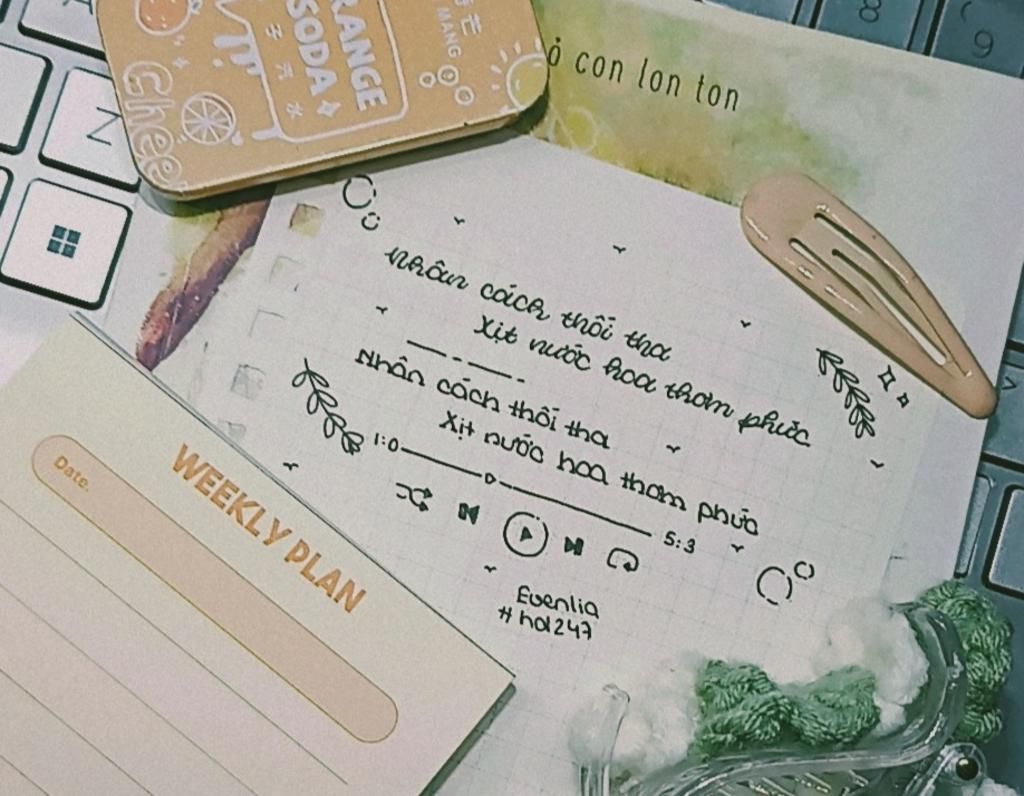 ORANGE
SODA
子汽水
MANG
Cheer
con lon ton
8
9
N
Nhân cách thối tha
Xịt nước hoa thơm phức
Nhân cách thối tha
Xịt nước hoa thơm phức
1:0
5:3
Evenlia
#hdl247
WEEKLY PLAN
Date.